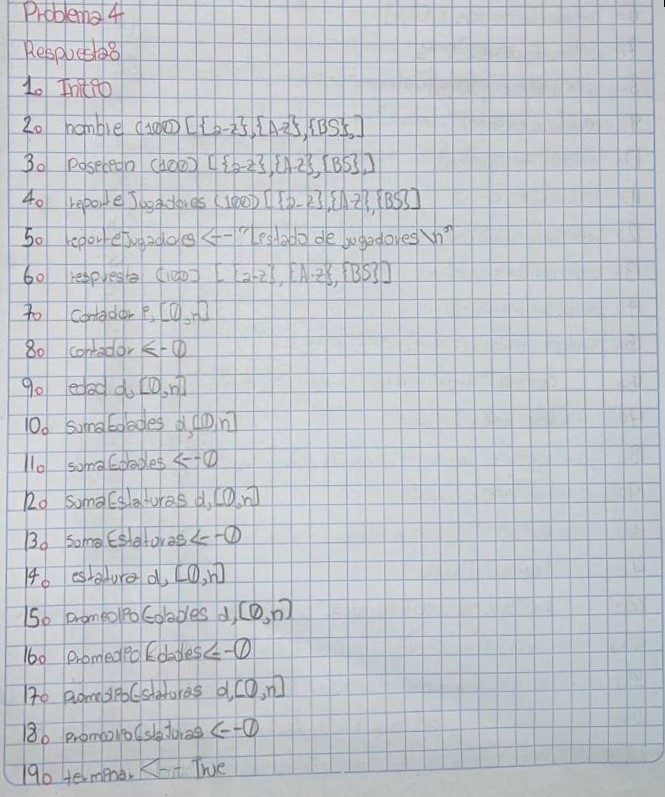 Problema 4
Respuestas
1. Inicio
2. nombre (100) [{a-z},{A-Z},{BS},]
3. Posicion (100) [{a-z},{A-Z},{BS},]
4. reporteJugadores (100) [{a-z},{A-Z},{BS}]
5. reporteJugadores <-- "Listado de jugadores \n"
6. respuesta (100) [{a-z},{A-Z},{BS}]
7. Contador e,[0,n]
8. contador <-0
9. edad d,[0,n]
10. SumaEdades d,[0,n]
11. sumaEdades <--0
12. SumaEstaturas d,[0,n]
13. SumaEstaturas <--0
14. estatura d,[0,n]
15. PromedioEdades d,[0,n]
16. PromedioEdades <-0
17. PromedioEstaturas d,[0,n]
18. promedioEstaturas <--0
19. terminar <-- True